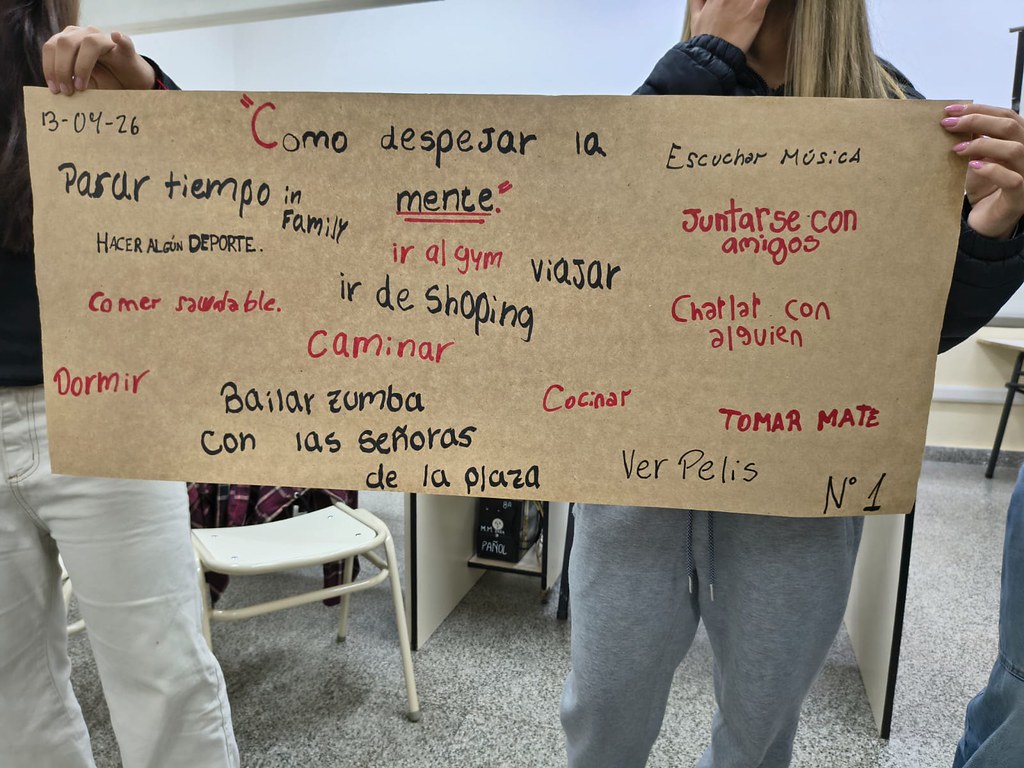 13-04-26
"Como despejar la
mente."
Pasar tiempo in
Family
HACER ALGÚN DEPORTE.
Comer saludable.
Dormir
ir al gym
viajar
ir de shoping
Caminar
Bailar zumba
con las señoras
de la plaza
Cocinar
Escuchar Música
Juntarse con
amigos
Charlar con
alguien
TOMAR MATE
Ver Pelis
N° 1
PAÑOL